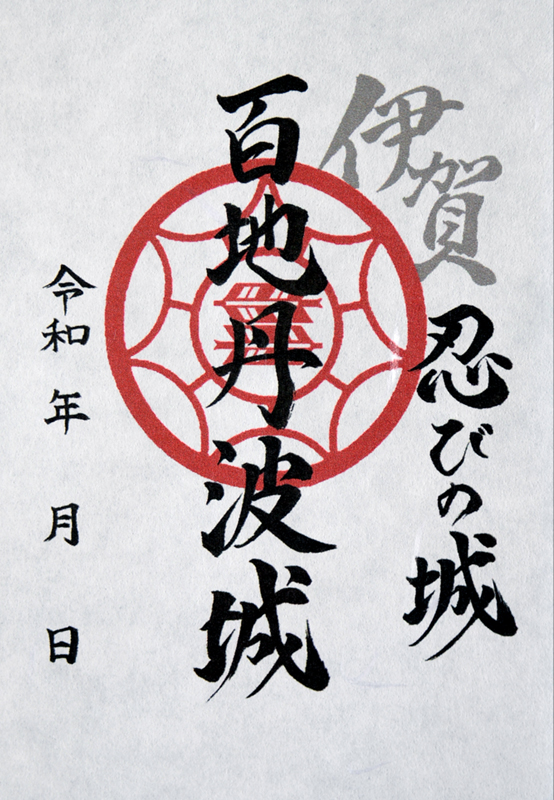 伊賀
忍びの城
百地丹波城
令和 年 月 日